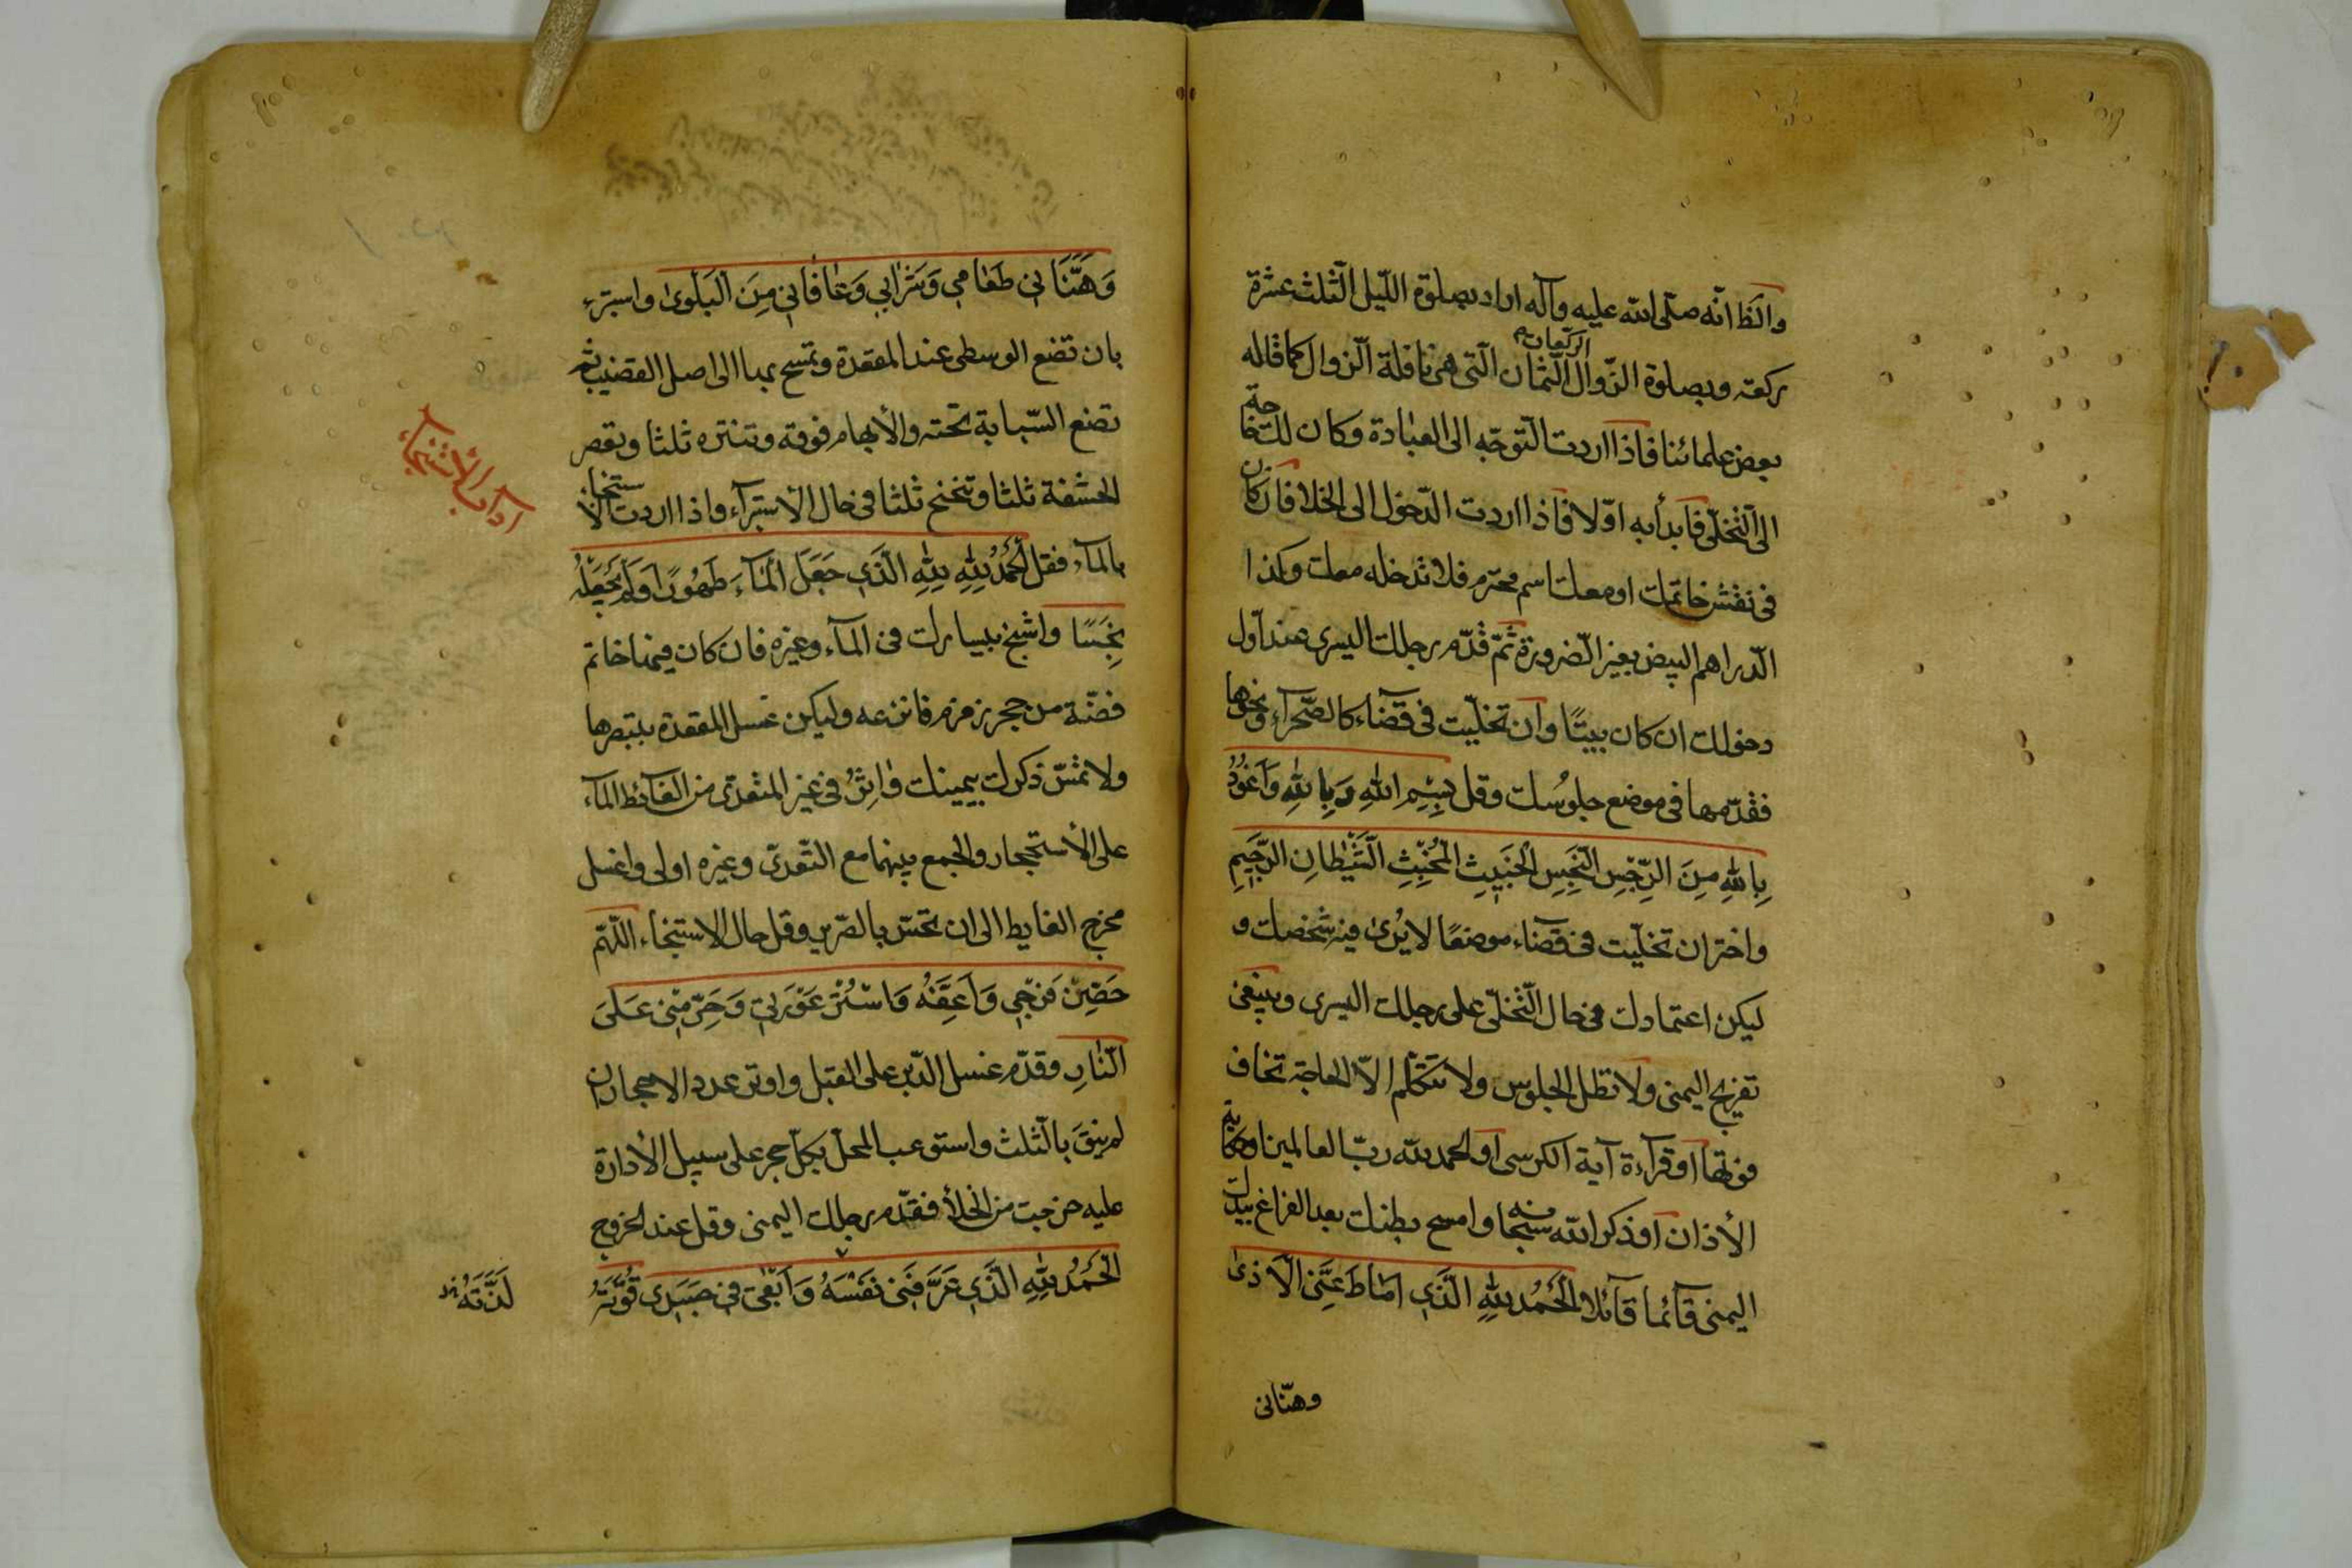 والظ انّه صلّى الله عليه وآله اراد بصلوة اللّيل الثّلث عشرة
ركعة وبصلوة الزّوال الثّمان الركعات الّتى هى نافلة الزوال كما قاله
بعض علمائنا فاذا اردت التّوجّه الى العبادة وكان لك حاجة
الى التّخلّى فابدأ به اوّلا فاذا اردت الدّخول الى الخلا فان كان
فى نقش خاتمك او معك اسم محترم فلا تدخله معك وكذا
الدّراهم البيض بغير الضّرورة ثمّ قدّم رجلك اليسرى عند اوّل
دخولك ان كان بيتًا وان تخلّيت فى فضاء كالصّحرآء ونحوها
فقدّمها فى موضع جلوسك وقل بِسْمِ اللهِ وَبِاللهِ وَاَعُوذُ
بِاللهِ مِنَ الرِّجْسِ النَّجِسِ الْخَبِيثِ الْمُخْبِثِ الشَّيْطانِ الرَّجِيمِ
واختر ان تخلّيت فى فضاء موضعًا لا يُرى فيه شخصك و
ليكن اعتمادك فى حال التّخلّى على رجلك اليسرى وينبغى
تفريج اليمنى ولا تطل الجلوس ولا تتكلّم الّا لحاجة تخاف
فوتها او قرآءة آية الكرسى او الحمد لله ربّ العالمين او حكاية
الأذان او ذكر الله سبحانه وامسح بطنك بعد الفراغ بيدك
اليمنى قآئما قآئلا الْحَمْدُ لِلّهِ الَّذى اَماطَ عَنِّى الْاَذى
وهنّانى
وَهَنَّانِى طَعامِى وَشَرابِى وَعافانِى مِنَ الْبَلْوى واستبرء
بان تضع الوسطى عند المقعدة وتمسح بها الى اصل القضيب ثم
تضع السّبابة تحته والأبهام فوقه وتنتره ثلثا وتعصر
الحشفة ثلثا وتتنحنح ثلثا فى حال الأستبرآء واذا اردت الاستنجاء
آداب الأستنجاء
بالمآء فقل اَلْحَمْدُ لِلّهِ الَّذِى جَعَلَ الْمآءَ طَهُورًا وَلَمْ يَجْعَلْهُ
نَجِسًا واستنج بيسارك فى المآء وغيره فان كان فيها خاتم
فضّة من حجر زمزم فانزعه وليكن غسل المقعدة بتبصرها
ولا تمسّ ذكرك بيمينك واثِرْ فى غير المتعدّى من الغآئط المآء
على الأستجمار والجمع بينهما مع التّعدّى وغيره اولى واغسل
مخرج الغايط الى ان تحسّ بالصّرير وقل حال الاستنجاء اللّهمّ
حَصِّنْ فَرْجِى وَاَعِفَّهُ وَاسْتُرْ عَوْرَتِى وَحَرِّمْنِى عَلَى
النّارِ وقدّم غسل الدّبر على القبل واوتر عدد الاحجار ان
لم ينقَ بالثّلث واستوعب المحلّ بكلّ حجر على سبيل الأدارة
عليه خرجت من الخلأ فقدّم رجلك اليمنى وقل عند الخروج
الْحَمْدُ لِلّهِ الَّذِى عَرَّفَنِى نَفْسَهُ وَاَبْقى فِى جَسَدِى قُوَّتَهُ
لَذَّتَهُ